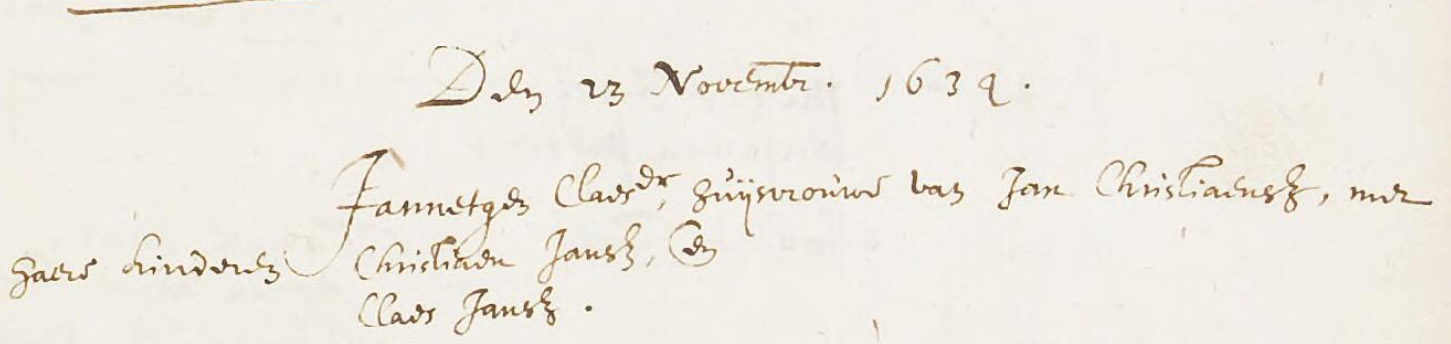 Den 23 Novembr. 1634.
Jannetgen Claesdr, huijsvrouwe van Jan Christiaensz, met
haere kinderen Christiaen Jansz, en
Claes Jansz.